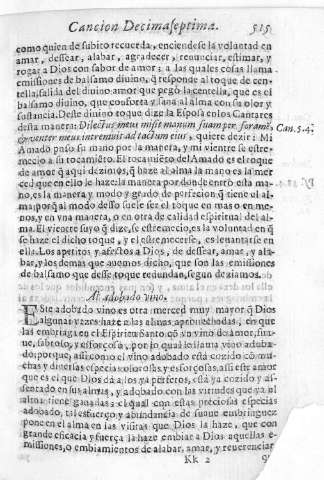 Cancion Decimaseptima. 515
como quien de subito recuerda, enciendese la voluntad en
amar, dessear, alabar, agradecer, renunciar, estimar, y
rogar a Dios con sabor de amor; a las quales cosas llama
emissiones de balsamo diuino, q̃ responde al toque de cen-
tella, salida del diuino amor que pegò la centella, que es el
balsamo diuino, que conforta y sana al alma con su olor y
sustancia. Deste diuino toque dize la Esposa en los Cantares
desta manera: Dilectus meus misit manum suam per foramẽ, Can. 5. 4.
& venter meus intremuit ad tactum eius, quiere dezir: Mi
Amado puso su mano por la manera, y mi vientre se estre-
mecio a su tocamiẽto. El tocamiẽto del Amado es el toque
de amor q̃ aqui dezimos, q̃ haze al alma la mano es la mer
ced que en ello le haze: la manera por donde entrò esta ma-
no, es la manera, y modo y grado de perfecion q̃ tiene el al-
ma, porq̃ al modo desso suele ser el toque en mas o en me-
nos, y en vna manera, o en otra de calidad espiritual del al-
ma. El vientre suyo q̃ dize, se estremecio, es la voluntad en q̃
se haze el dicho toque, y el estremecerse, es leuantarse en
ella los apetitos y afectos a Dios, de dessear, amar, y ala-
bar, y los demas que auemos dicho, que son las emissiones
de balsamo que desse toque redundan, segun deziamos.
Al adobado vino.
Este adobado vino es otra merced muy mayor q̃ Dios
algunas vezes haze a las almas aprouechadas, en que
las embriaga en el Espiritu Santo, cõ vn vino de amor, sua-
ue, sabroso, y esforçoso, por lo qual lo llama vino adoba-
do; porque assi como el vino adobado està cozido cõ mu-
chas y diuersas especias olorosas y esforçosas, assi este amor
que es el que Dios dà a los ya perfetos, està ya cozido y as-
sentado en sus almas, y adobado con las virtudes que ya el
alma tiene ganadas: el qual con estas preciosas especias
adobado, tal esfuerço y abundancia de suaue embriaguez
pone en el alma en las visitas que Dios la haze, que con
grande eficacia y fuerça la haze embiar a Dios aquellas e-
missiones, o embiamientos de alabar, amar, y reuerenciar
Kk 2